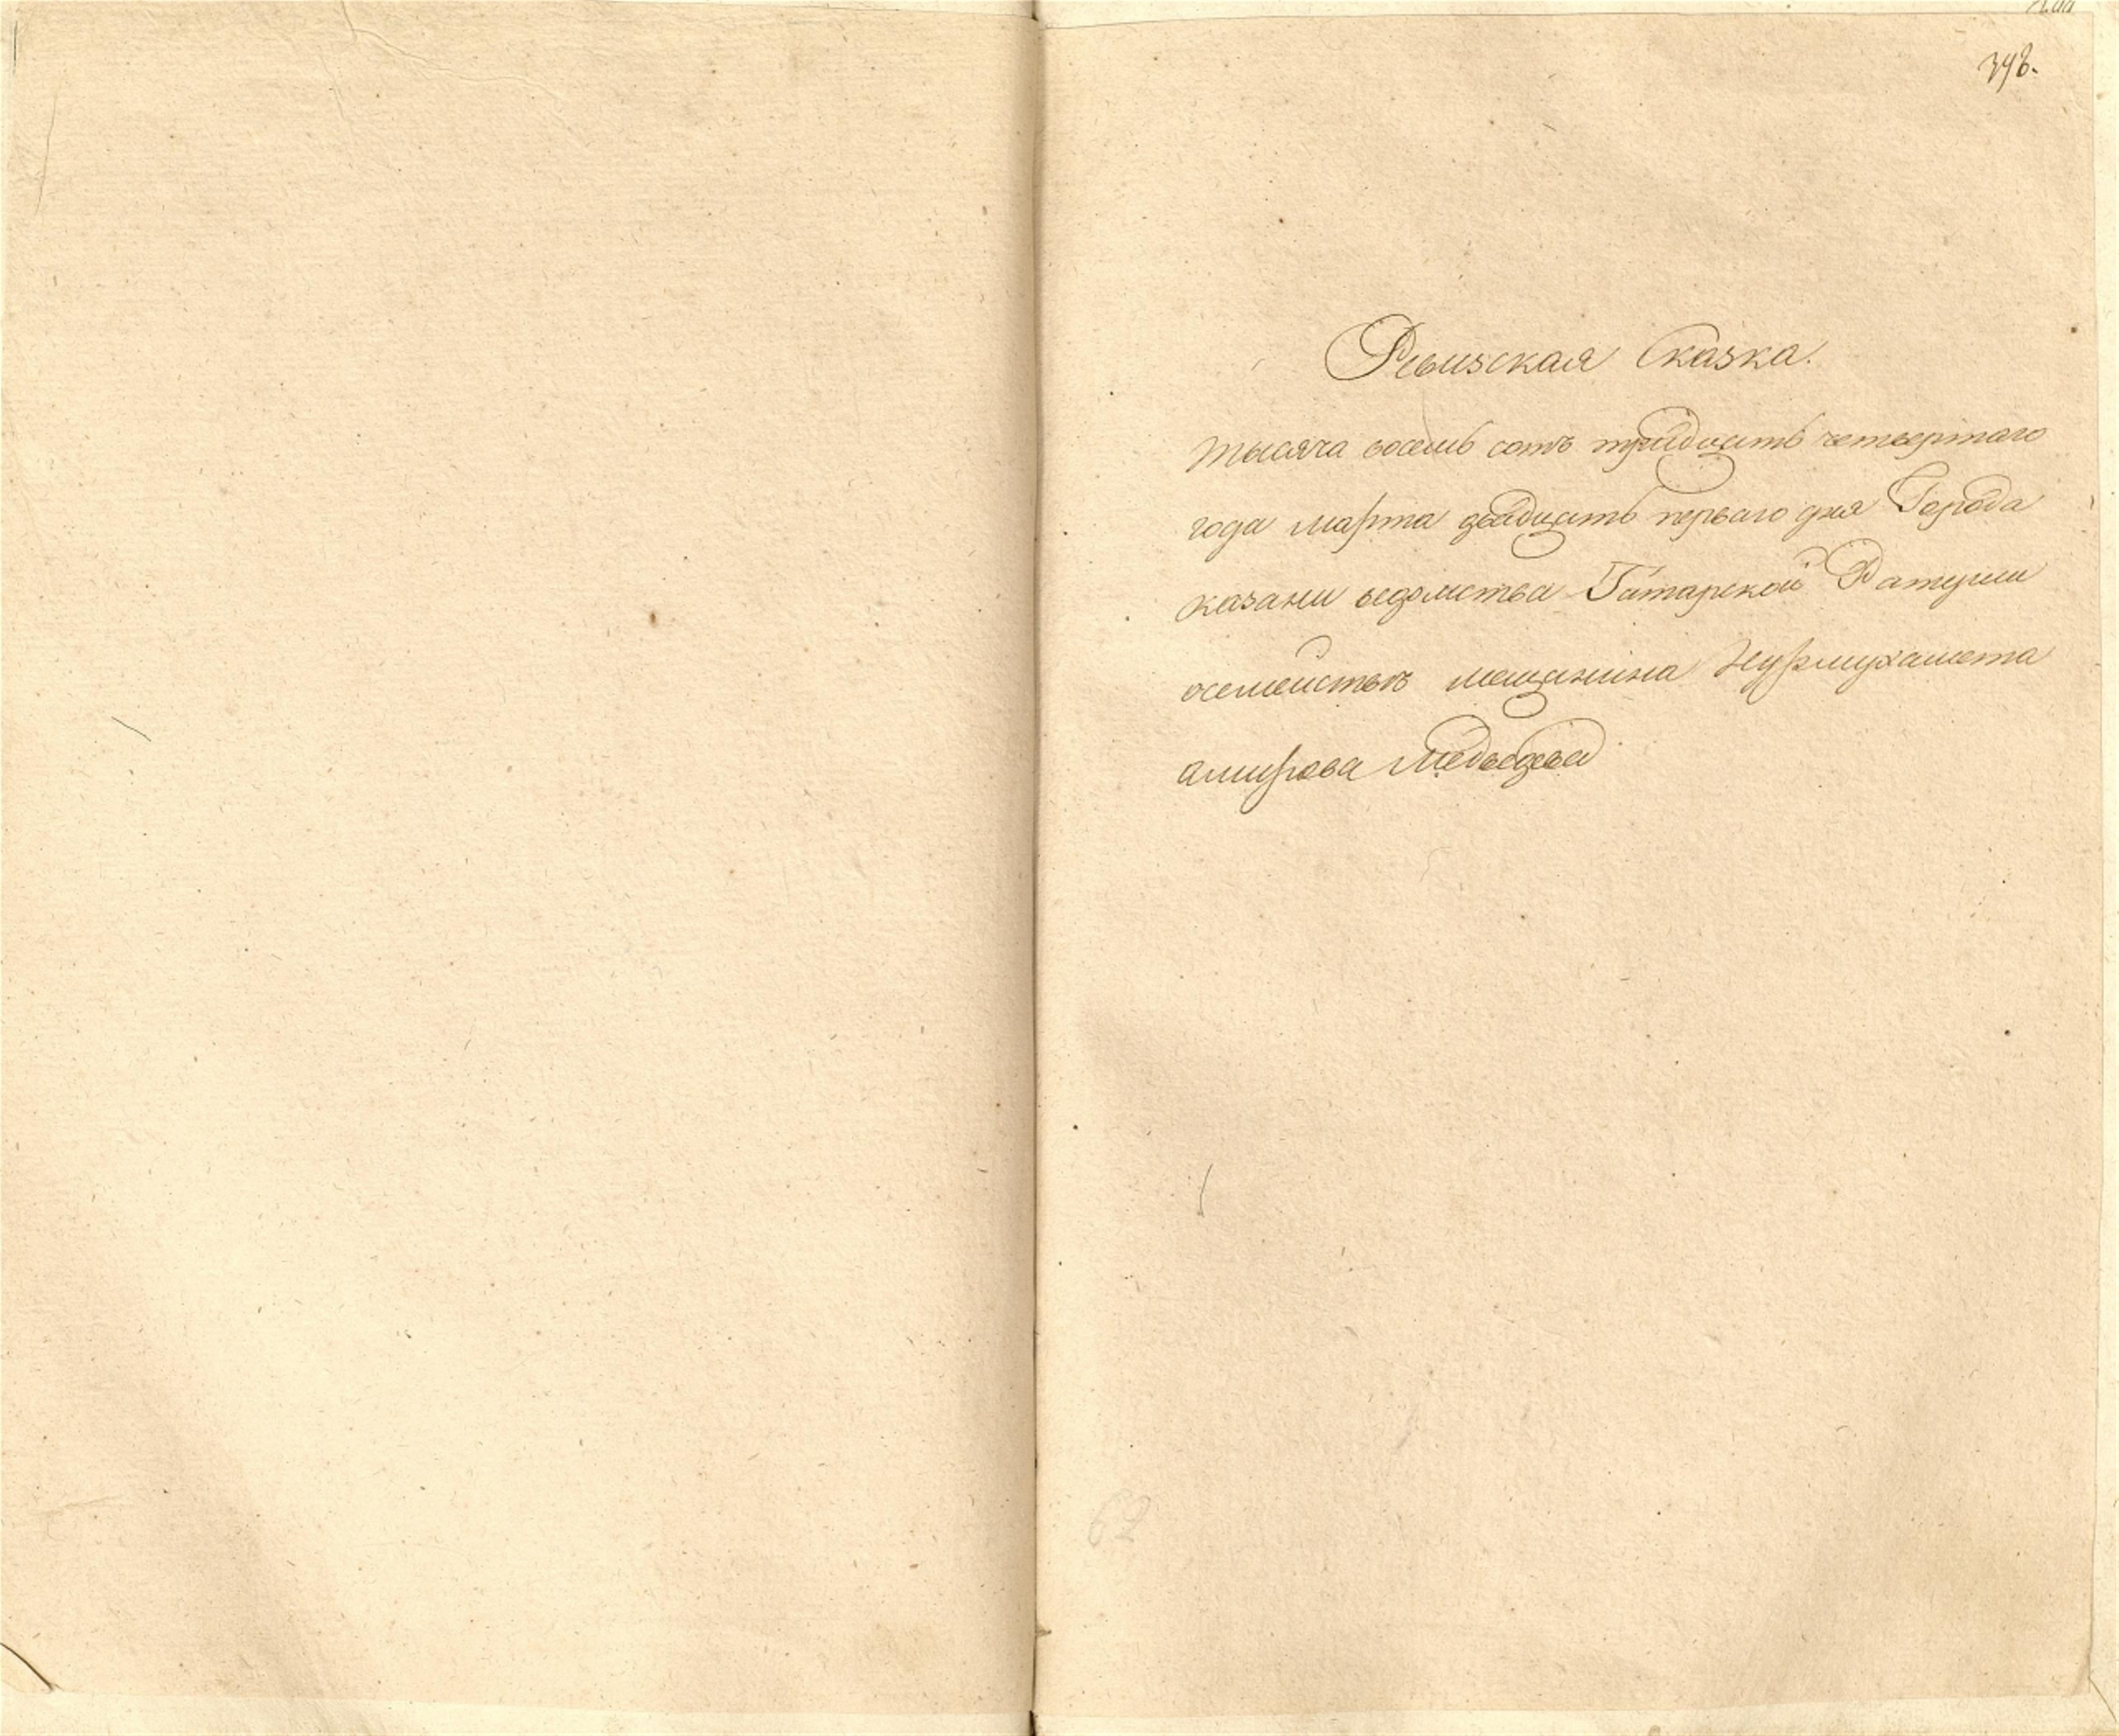 348.
Ревизская Сказка.
тысяча восемь сотъ тридцать четвертаго
года марта двадцать перваго дня Города
казани ведомства Татарской Ратуши
осемействѣ мещанина Нурмухамета
амирова Медведева
62